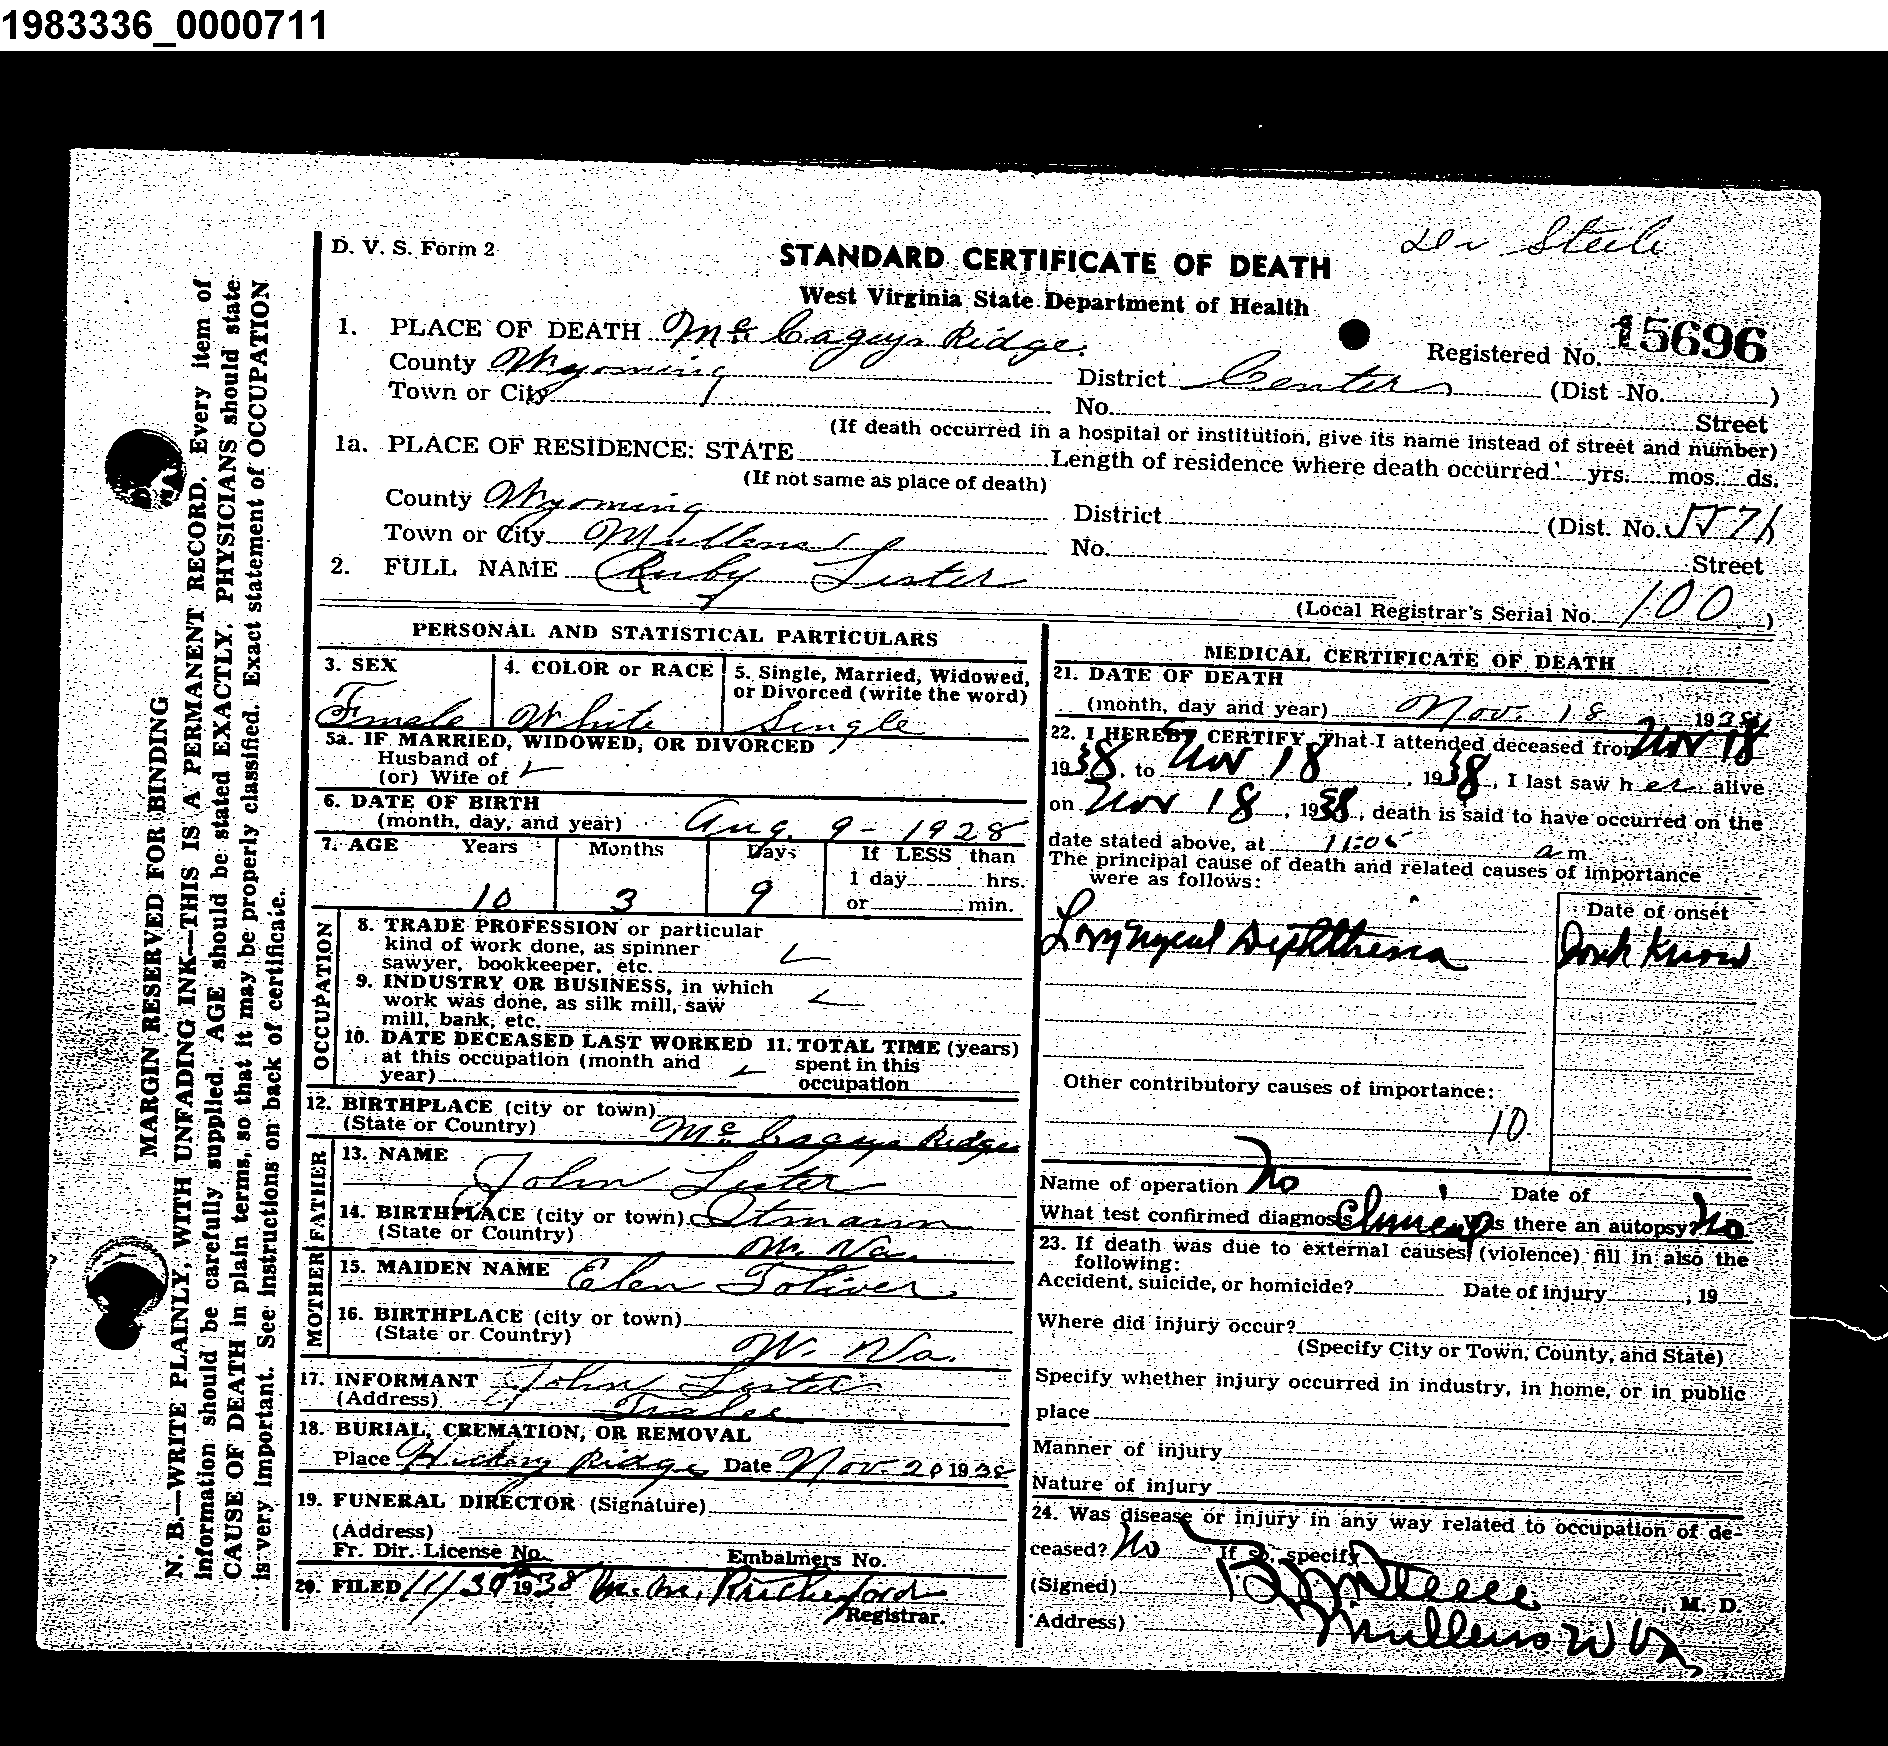 1983336_0000711
Dr Steele
D. V. S. Form 2
STANDARD CERTIFICATE OF DEATH
West Virginia State Department of Health
1. PLACE OF DEATH Mc Cagays Ridge.
Registered No. 15696
County Wyoming District Center (Dist. No. )
Town or City No. Street
(If death occurred in a hospital or institution, give its name instead of street and number)
1a. PLACE OF RESIDENCE: STATE Length of residence where death occurred yrs. mos. ds.
(If not same as place of death)
County Wyoming District (Dist. No. 5571)
Town or City Mullens No. Street
2. FULL NAME Ruby Lester
(Local Registrar's Serial No. 100 )
PERSONAL AND STATISTICAL PARTICULARS
3. SEX
Female
4. COLOR or RACE
White
5. Single, Married, Widowed,
or Divorced (write the word)
Single
5a. IF MARRIED, WIDOWED, OR DIVORCED
Husband of
(or) Wife of
6. DATE OF BIRTH
(month, day, and year) Aug. 9 - 1928
7. AGE Years Months Days If LESS than
1 day hrs.
10 3 9 or min.
OCCUPATION
8. TRADE PROFESSION or particular
kind of work done, as spinner
sawyer, bookkeeper, etc.
9. INDUSTRY OR BUSINESS, in which
work was done, as silk mill, saw
mill, bank, etc.
10. DATE DECEASED LAST WORKED
at this occupation (month and
year)
11. TOTAL TIME (years)
spent in this
occupation
12. BIRTHPLACE (city or town)
(State or Country) Mc Cagays Ridge
FATHER
13. NAME John Lester
14. BIRTHPLACE (city or town) Otmann
(State or Country) W. Va.
MOTHER
15. MAIDEN NAME Elen Toliver
16. BIRTHPLACE (city or town)
(State or Country) W. Va.
17. INFORMANT John Lester
(Address)
18. BURIAL, CREMATION, OR REMOVAL
Place Hickory Ridge Date Nov. 20 1938
19. FUNERAL DIRECTOR (Signature)
(Address)
Fr. Dir. License No. Embalmers No.
20. FILED 11/30 1938 M. M. Rutherford
Registrar.
MEDICAL CERTIFICATE OF DEATH
21. DATE OF DEATH
(month, day and year) Nov. 18 1938
22. I HEREBY CERTIFY, That I attended deceased from Nov 18
1938, to Nov 18, 1938, I last saw her alive
on Nov 18, 1938, death is said to have occurred on the
date stated above, at 11:05 a m
The principal cause of death and related causes of importance
were as follows:
Date of onset
Laryngeal Diphtheria
Dont Know
Other contributory causes of importance:
10
Name of operation No Date of
What test confirmed diagnosis Clinical Was there an autopsy? No
23. If death was due to external causes (violence) fill in also the
following:
Accident, suicide, or homicide? Date of injury , 19
Where did injury occur?
(Specify City or Town, County, and State)
Specify whether injury occurred in industry, in home, or in public
place
Manner of injury
Nature of injury
24. Was disease or injury in any way related to occupation of de-
ceased? No If so, specify
(Signed) Steele , M. D.
Address) Mullens W Va
MARGIN RESERVED FOR BINDING
N. B.—WRITE PLAINLY, WITH UNFADING INK—THIS IS A PERMANENT RECORD. Every item of
information should be carefully supplied. AGE should be stated EXACTLY. PHYSICIANS should state
CAUSE OF DEATH in plain terms, so that it may be properly classified. Exact statement of OCCUPATION
is very important. See instructions on back of certificate.